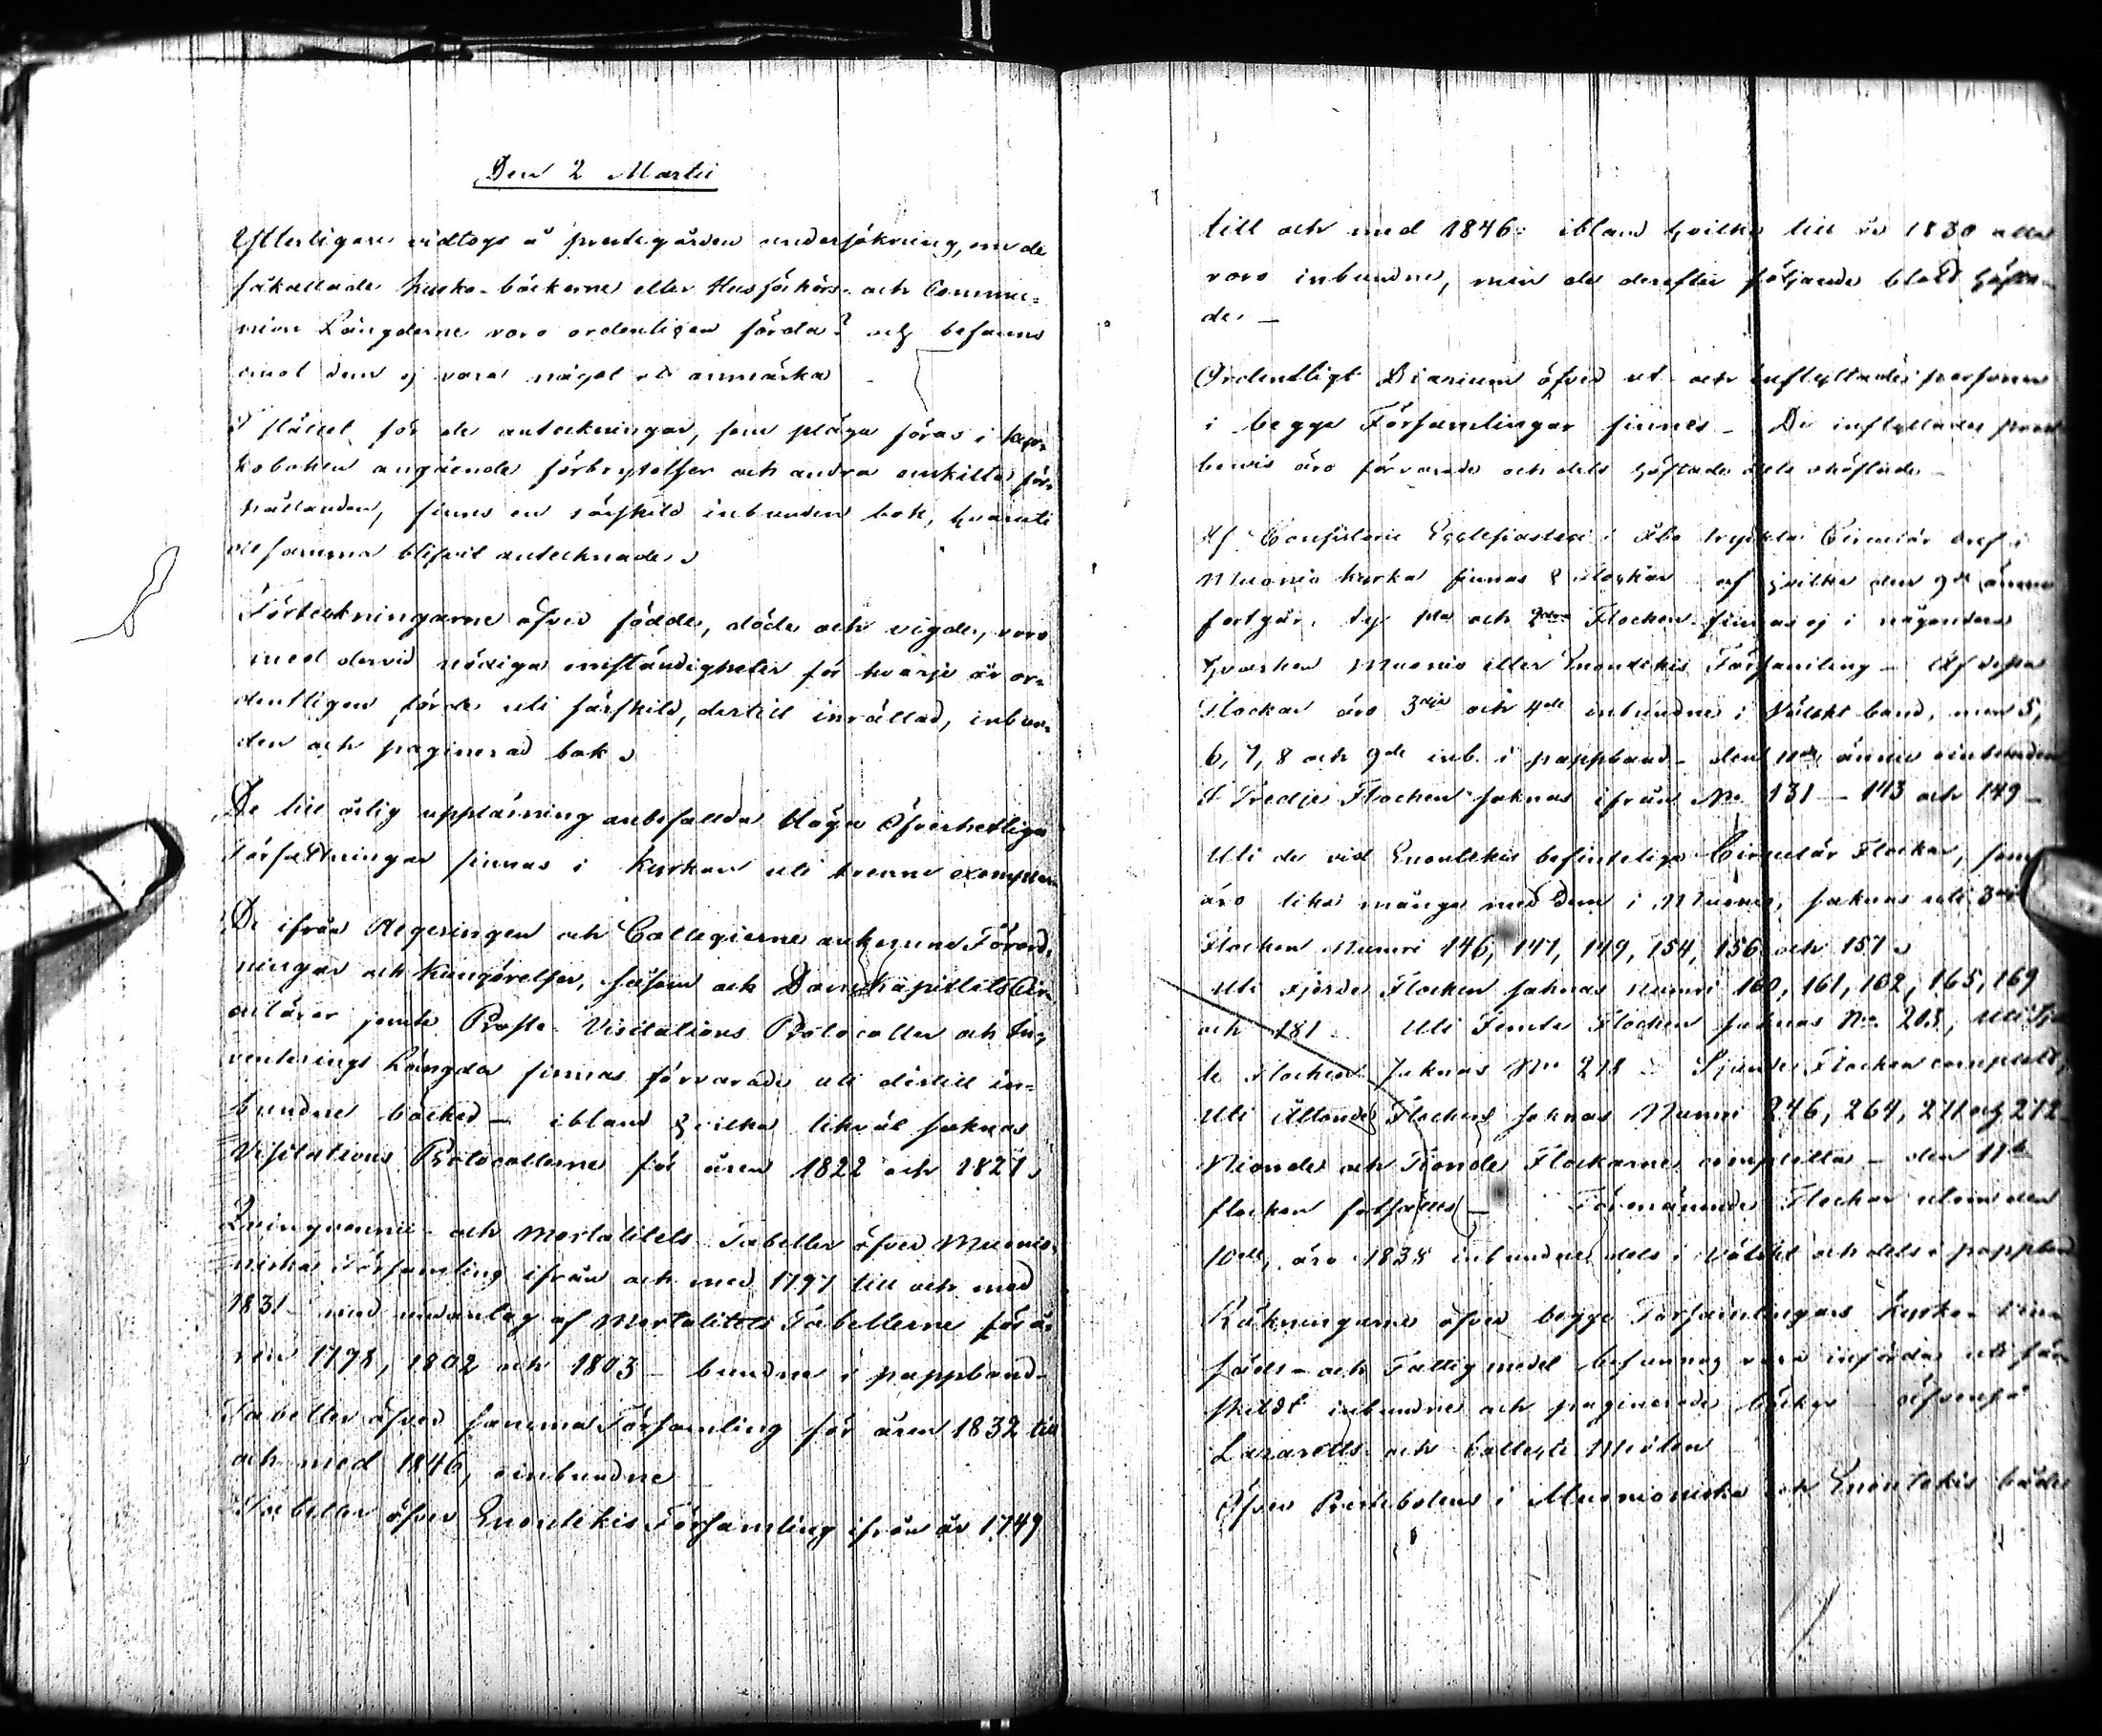 Den 2 Martii
Ytterligare vidtogs å prestegården undersökning, om de
såkallade kyrko-böckerne eller Husförhörs- och Commu-
nion Längderne voro ordentligen förda? och befanns
emot dem ej vara något att anmärka
I stället för de anteckningar, som pläga föras i kyr-
koboken angående förbrytelser och andra enskilta för-
hållanden, finnes en särskild inbunden bok, hvaruti
desamma blifvit antecknade.
Förteckningarne öfver födde, döde och vigde, voro
med dervid nödiga omständigheter för hvarje år or-
dentligen förde uti särskild, dertill inrättad, inbun-
den och paginerad bok.
De till årlig uppläsning anbefallda Höga Öfverhetliga
Författningar finnas i kyrkan uti trenne exemplar
De ifrån Regeringen och Collegierne ankomne Förord-
ningar och Kungörelser, såsom och DomkapitletsCir-
culärer jemte Probste-Visitations Protocoller och In-
venterings Längder finnas förvarade uti dertill in-
bundne böcker - ibland hvilka likväl saknas
Visitations Protocollerne för åren 1822 och 1827.
Quinquennii- och Mortalitets Tabeller öfver Muonio-
niska Församling ifrån och med 1797 till och med
1831 - med undantag af Mortalitets Tabellerne för å-
ren 1798, 1802 och 1803 - bundne i pappband-
Tabeller öfver samma Församling för åren 1832 till
och med 1846, oinbundne
Tabeller öfver Enontekis Församling ifrån år 1749
till och med 1846: ibland hvilka till år 1830 alla
voro inbundne, men de derefter följande blott häfta-
de. -
Ordentligt Diarium öfver ut- och inflyttade personer
i begge Församlingar finnes - De inflyttades prest-
bevis äro förvarade och dels häftade dels ohäftade -
Af Consistorii Ecclesiastici i Åbo tryckta Circulär bref i
Muonio kyrka finnas 8 Flockar af hvilka den 9de ännu
fortgår, ty 1sta och 2dra Flocken finnas ej i någondera
hvarken Muonio eller Enontekis Församling - Af dessa
Flockar äro 3dje och 4de inbundne i Välskt band, men 5,
6, 7, 8 och 9de inb. i pappband - den 11te ännu oinbunden
I Tredje Flocken saknas ifrån No 131 - 143 och 149 -
Uti de vid Enontekis befinteliga Circulär Flockar, som
äro lika många med dem i Muonio, saknas uti 3dje
Flocken Numri 146, 147, 149, 154, 156 och 157.
Uti Fjerde Flocken saknas numri 160, 161, 162, 165, 169
och 181. Uti Femte Flocken saknas No 203, Uti Sjet-
te Flocken saknas No 218 - Sjunde Flocken complett,
Uti Åttonde Flocken saknas Numri 246, 264, 271 och 272
Nionde och Tionde Flockarne completta - den 11te
flocken fortsättes - Förenämnde Flockar utom den
10de, äro 1838 inbundne dels i Välskt och dels i pappband
Räkningarne öfver begge Församlingars Kyrko-
- och Fattig medel befunnos vara införda uti sär-
skildt inbundne och paginerade böcker - äfvenså
Lazaretts- och Collegie Medlen
Öfver Prestebolens i Muonioniska och Enontekis både